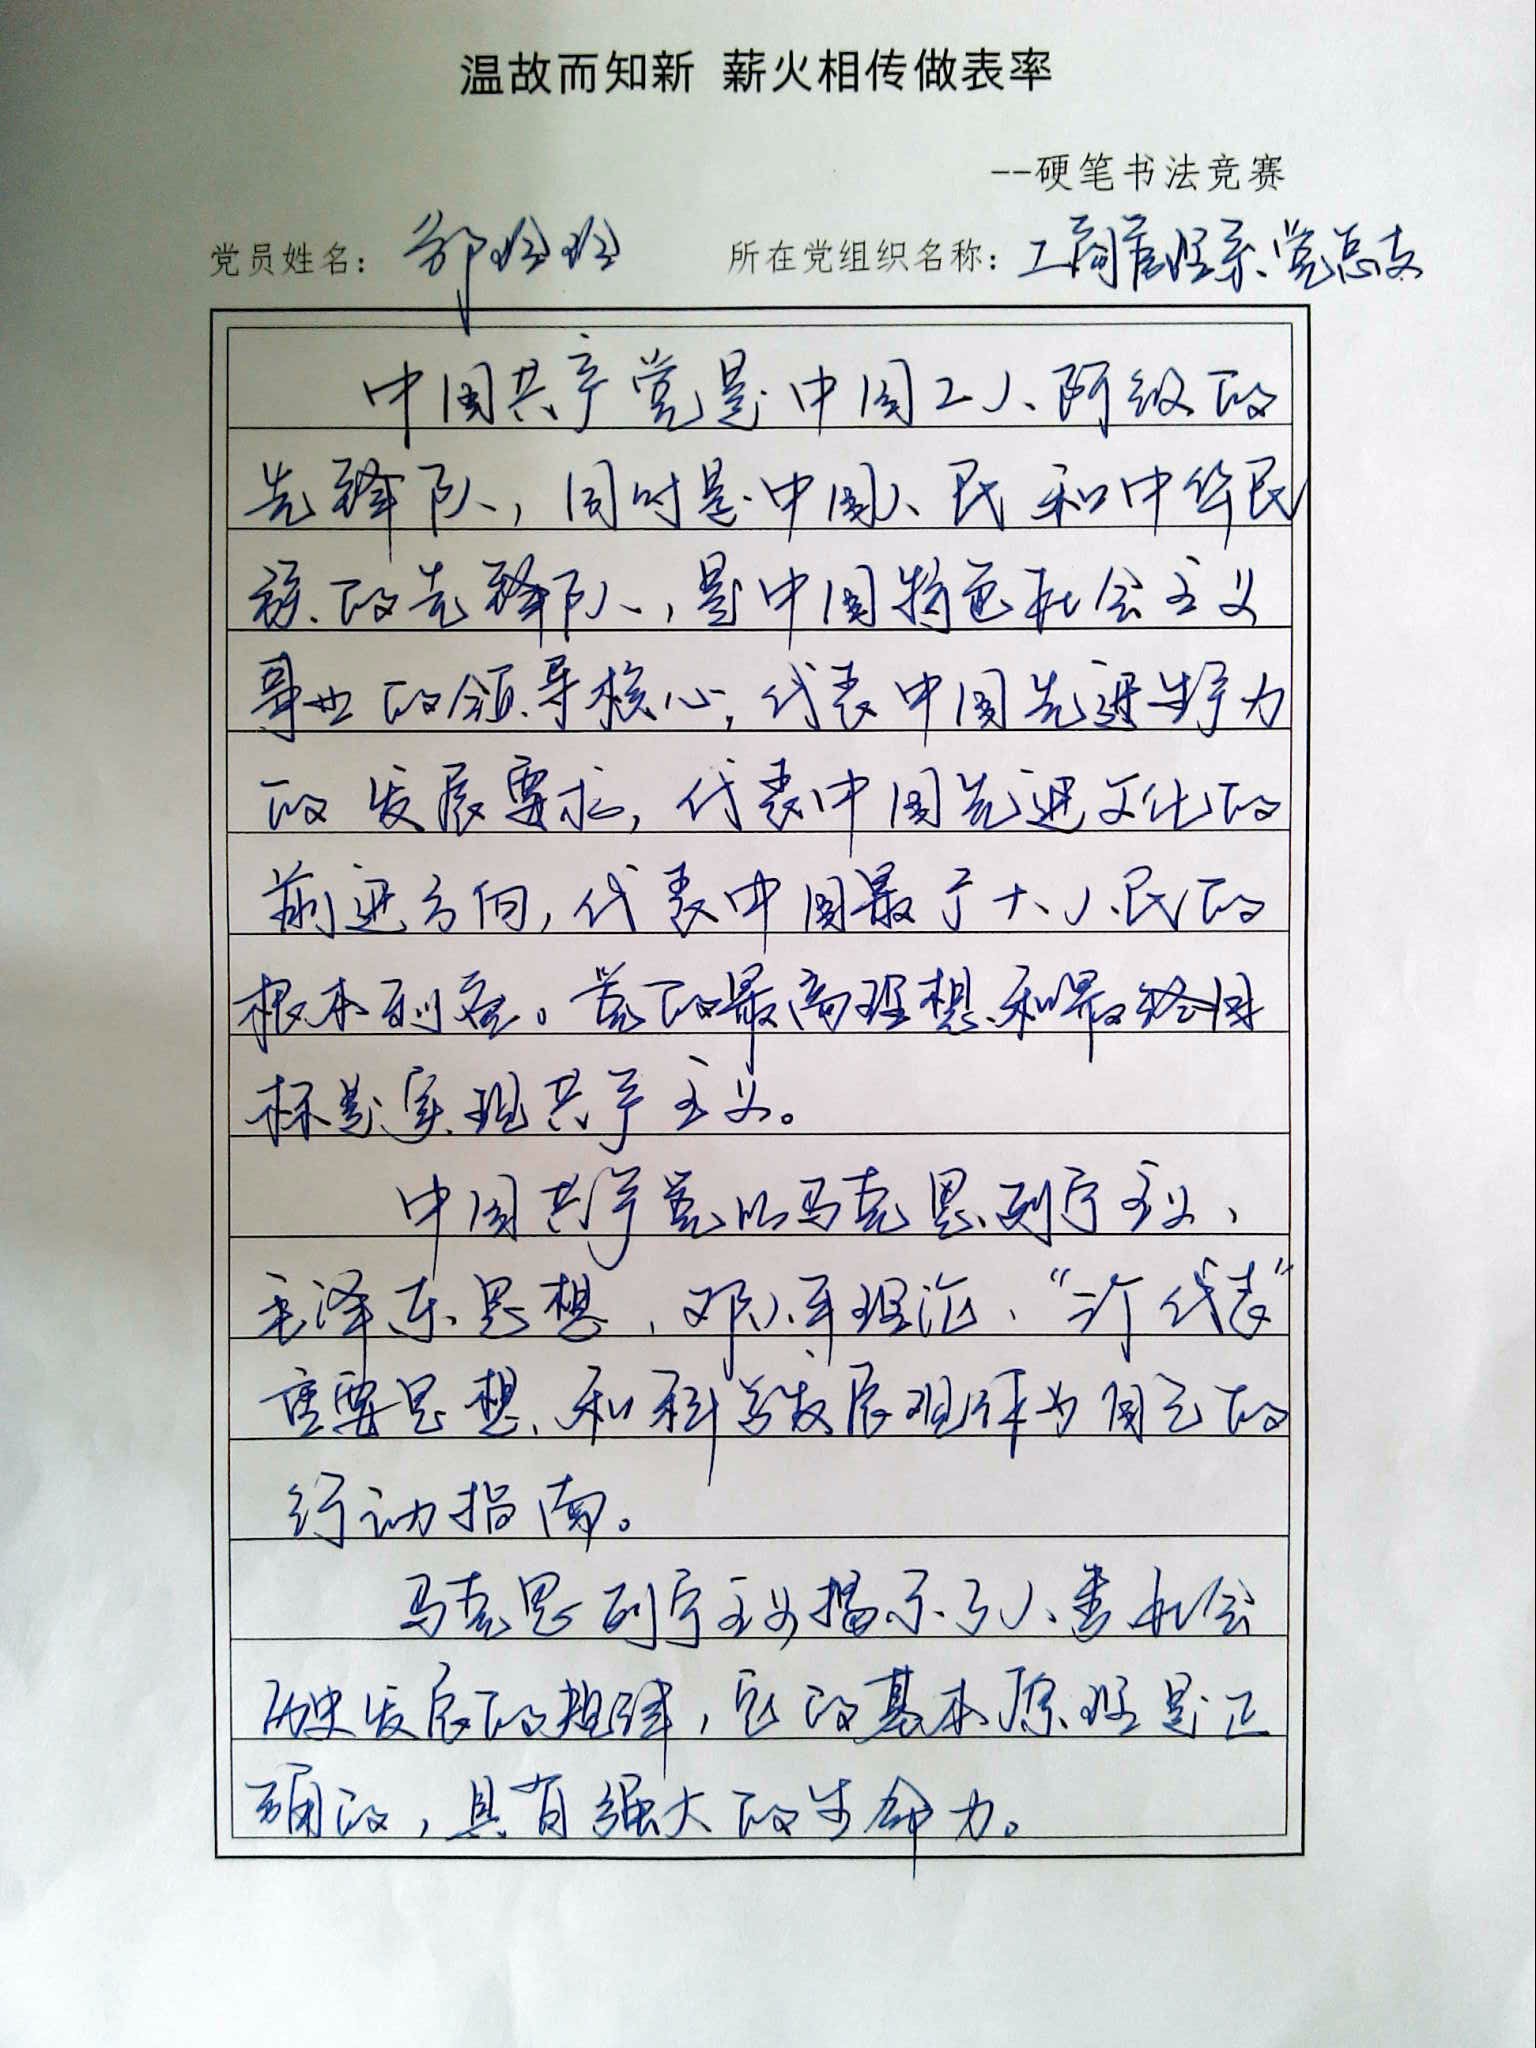 温故而知新 薪火相传做表率
--硬笔书法竞赛
党员姓名： 所在党组织名称：工商管理系党总支
中国共产党是中国工人阶级的
先锋队，同时是中国人民和中华民
族的先锋队，是中国特色社会主义
事业的领导核心，代表中国先进生产力
的发展要求，代表中国先进文化的
前进方向，代表中国最广大人民的
根本利益。党的最高理想和最终目
标是实现共产主义。
中国共产党以马克思列宁主义、
毛泽东思想、邓小平理论、“三个代表”
重要思想和科学发展观作为自己的
行动指南。
马克思列宁主义揭示了人类社会
历史发展的规律，它的基本原理是正
确的，具有强大的生命力。